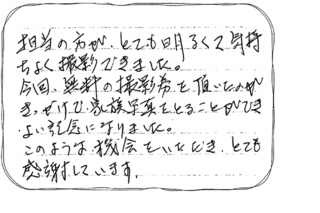 担当の方が、とても明るくて気持
ちよく撮影できました。
今回、無料の撮影券を頂いたのが
きっかけで、家族写真をとることができ
よい記念になりました。
このような機会をいただき、とても
感謝しています。